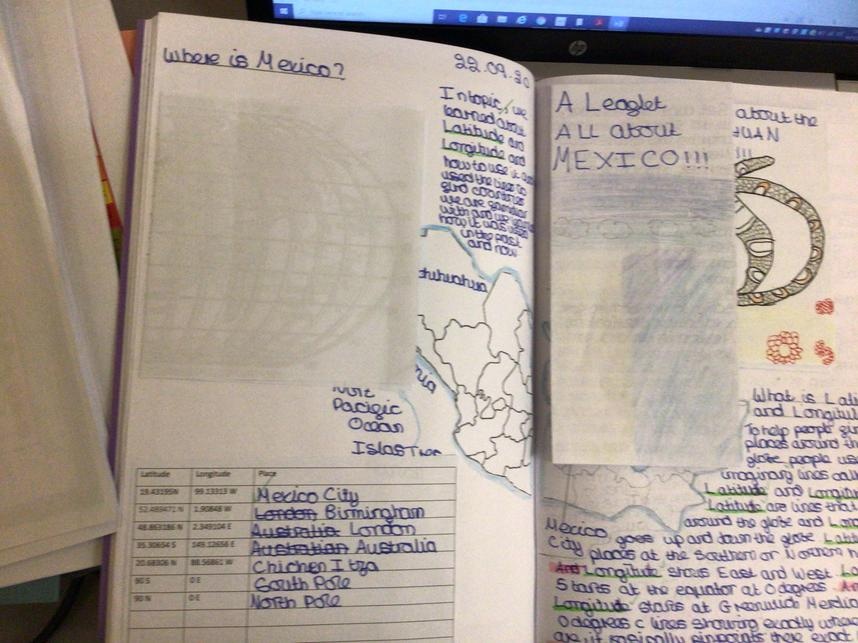 Where is Mexico?
22.09.20
In topic, we
learned about
Latitude and
Longitude and
how to use it
used the lines to
find countries
we are familiar
with and we
how it was used
in the past
and now
chihuahua
Pacific
Ocean
Islas
Latitude Longitude Place
19.43195N 99.13313 W Mexico City
52.489471 N 1.90848 W London Birmingham
48.863186 N 2.349104 E Australia London
35.30654 S 149.12656 E Australian Australia
20.68306 N 88.56861 W Chichen Itza
90 S 0 E South Pole
90 N 0 E North Pole
A Leaflet
ALL about
MEXICO!!!
about the
What is Lati
and Longitu
To help people fin
places around th
globe, people use
imaginary lines call
Latitude and Longitu
Latitude are lines that
around the globe and Lon
Mexico
City
goes up and down the globe Latit
places at the Southern or Northern h
And Longitude shows East and West. La
Starts at the equator at 0 degrees. An
Longitude starts at Greenwich Meridia
0 degrees lines showing exactly where